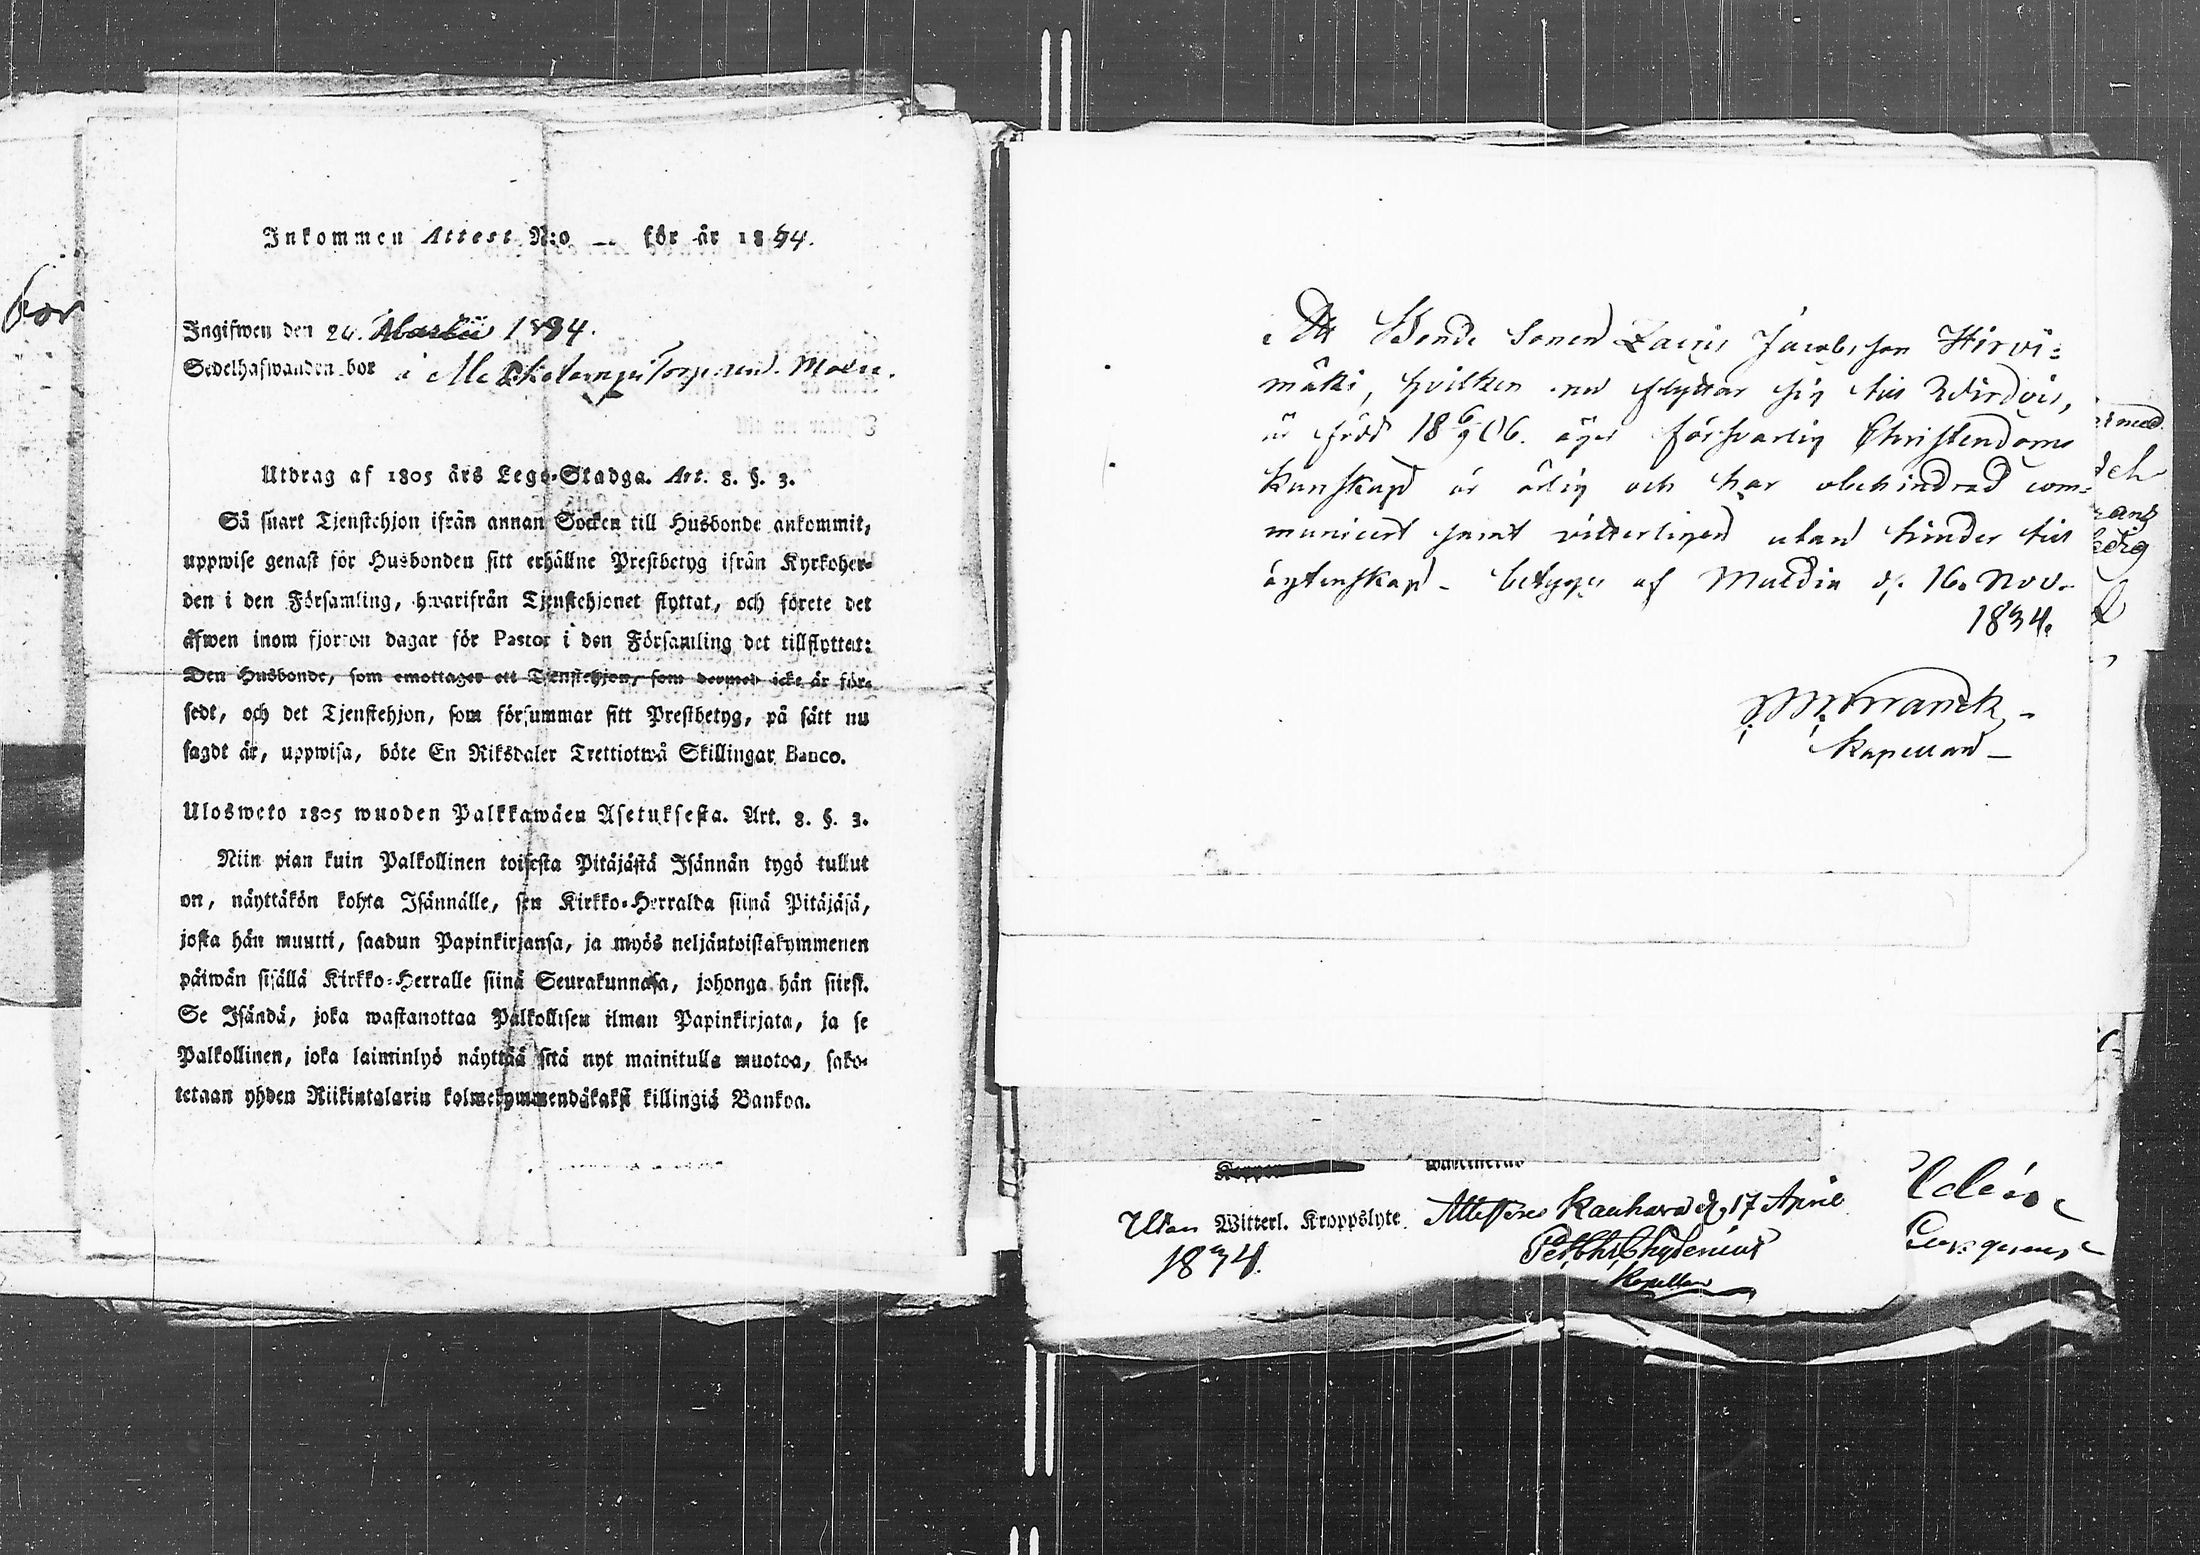 Inkommen Attest N:o — för år 1834.
Ingifwen den 26. Martii 1834.
Sedelhafwanden bor i
Utdrag af 1805 års Lego-Stadga. Art. 8. §. 3.
Så snart Tjenstehjon ifrån annan Socken till Husbonde ankommit,
uppwise genast för Husbonden sitt erhållne Prestbetyg ifrån Kyrkoher-
den i den Församling, hwarifrån Tjenstehjonet flyttat, och förete det
äfwen inom fjorton dagar för Pastor i den Församling det tillflyttat:
Den Husbonde, som emottager ett Tjenstehjon, som dermed icke är för-
sedt, och det Tjenstehjon, som försummar sitt Prestbetyg, på sätt nu
sagdt är, uppwisa, böte En Riksdaler Trettiotwå Skillingar Banco.
Ulosweto 1805 wuoden Palkkawäen Asetuksesta. Art. 8. §. 3.
Niin pian kuin Palkollinen toisesta Pitäjästä Isännän tygö tullut
on, näyttäkön kohta Isännälle, sen Kirkko-Herralda siinä Pitäjäsä,
josta hän muutti, saadun Papinkirjansa, ja myös neljäntoistakymmenen
päiwän sisällä Kirkko-Herralle siinä Seurakunnasa, johonga hän siirsi.
Se Isändä, joka wastanottaa Palkollisen ilman Papinkirjata, ja se
Palkollinen, joka laiminlyö näyttää sitä nyt mainitulla muotoa, sako-
tetaan yhden Riikintalarin kolmekymmendäkaksi killingiä Bankoa.
bor
Att Bonde Sonen Zacris Jacobsson Hirvi-
mäki, hvilken nu flyttar sig till Wirdois,
är född 18 6/9 06. äger försvarlig Christendoms
kunskap är ärlig och har obehindrad com-
municert samt vitterligen utan hinder till
ägtenskap - betygas af Muldia d. 16. Nov.
1834.
Franck
Kapellan
Utan Witterl. Kroppslyte. Attesteras Kauhava d. 17 April
1834.
Chydenius
Kapellan